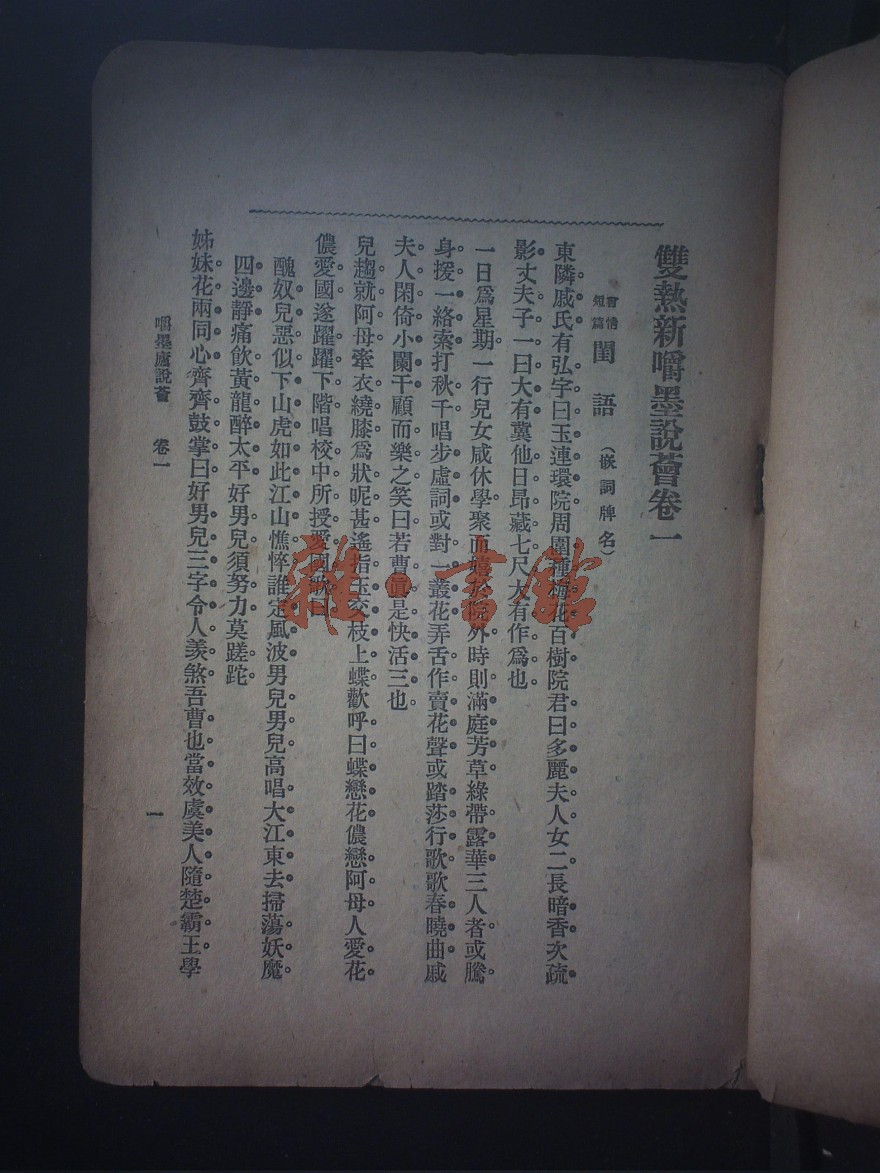 雙熱新嚼墨說薈卷一
言情短篇 閨語 (嵌詞牌名)
東隣戚氏有弘字曰玉連環院周圍種梅花百樹院君曰多麗夫人女二長暗香次疏
影丈夫子一曰大有冀他日昻藏七尺大有作爲也
一日爲星期一行兒女咸休學聚而嬉於院外時則滿庭芳草綠帶露華三人者或騰
身援一絡索打秋千唱步虛詞或對一叢花弄舌作賣花聲或踏莎行歌歌春曉曲戚
夫人閑倚小闌干顧而樂之笑曰若曹眞是快活三也
兒趨就阿母牽衣繞膝爲狀昵甚遙指玉交枝上蝶歡呼曰蝶戀花儂戀阿母人愛花
儂愛國遂躍躍下階唱校中所授愛國歌曰
醜奴兒惡似下山虎如此江山憔悴誰定風波男兒男兒高唱大江東去掃蕩妖魔
四邊靜痛飲黃龍醉太平好男兒須努力莫蹉跎
姊妹花兩同心齊齊鼓掌曰好男兒三字令人羨煞吾曹也當效虞美人隨楚霸王學
嚼墨廬說薈 卷一 一
雜·書館